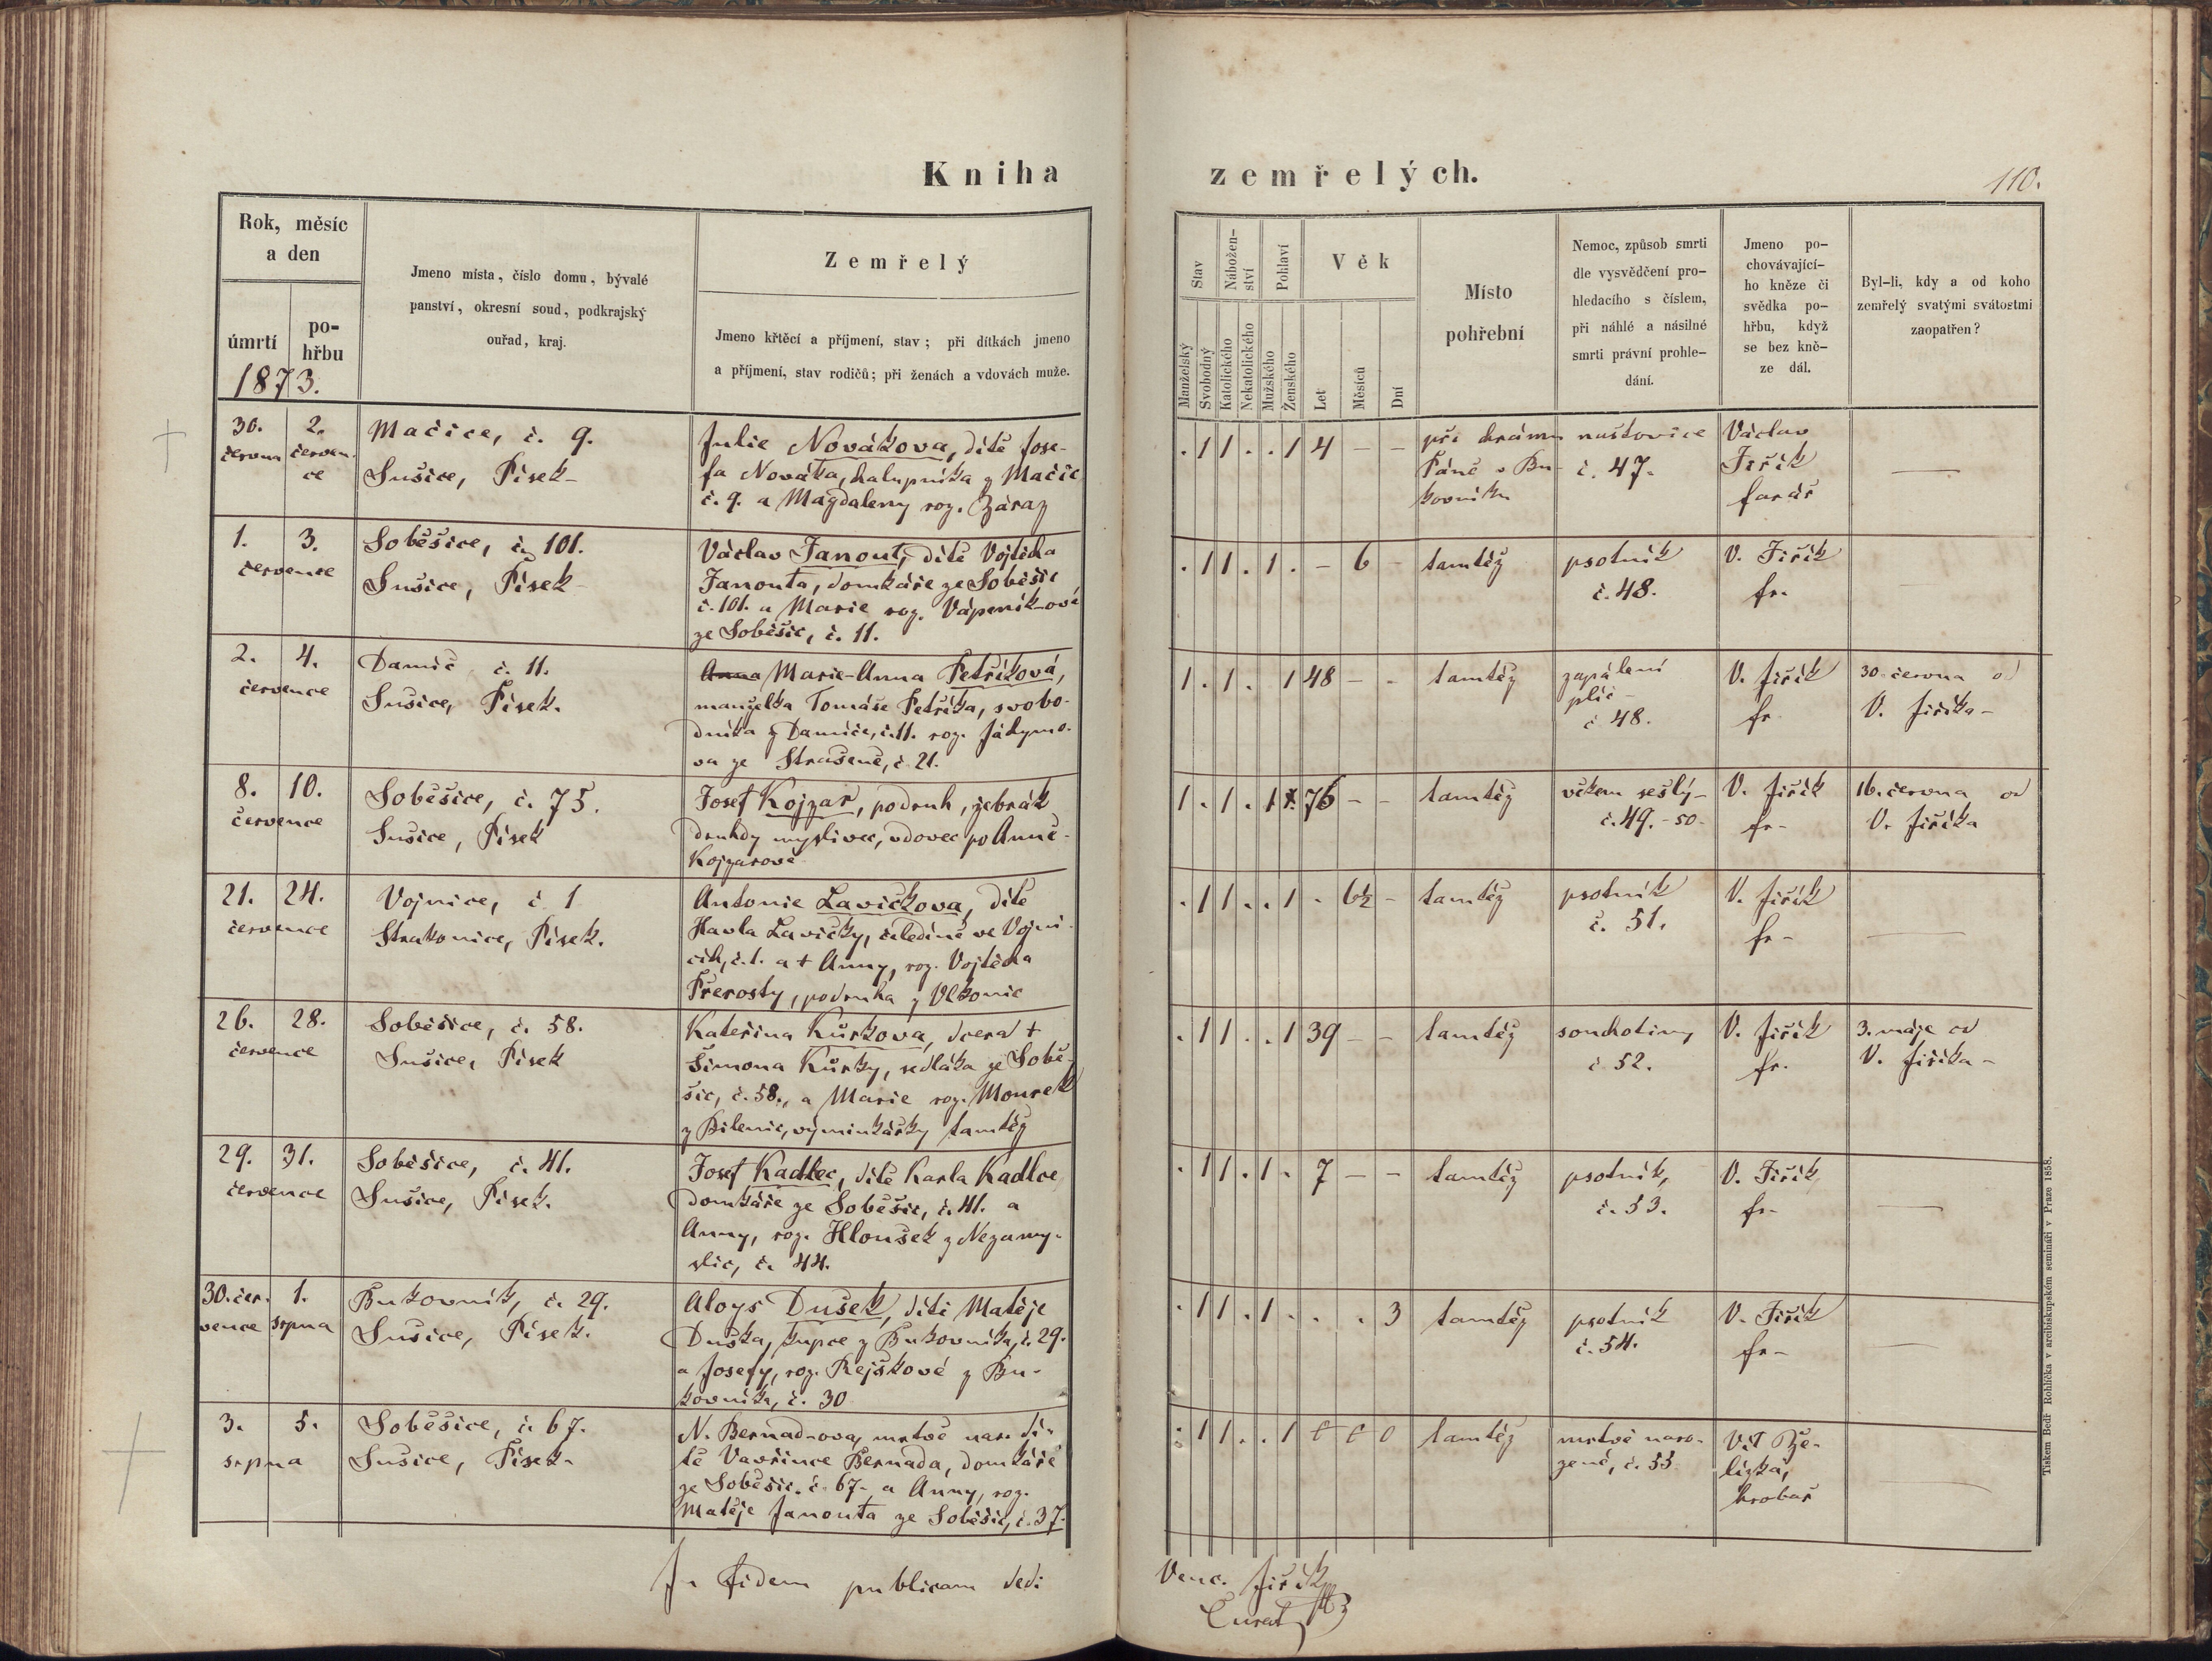 Kniha
zemřelých.
110.
Rok, měsíc
a den
úmrtí
po-
hřbu
1873.
Jmeno místa, číslo domu, bývalé
panství, okresní soud, podkrajský
ouřad, kraj.
Zemřelý
Jmeno křtěcí a příjmení, stav; při dítkách jmeno
a příjmení, stav rodičů; při ženách a vdovách muže.
Stav
Nábožen-
ství
Pohlaví
Věk
Manželský
Svobodný
Katolického
Nekatolického
Mužského
Ženského
Let
Měsíců
Dní
Místo
pohřební
Nemoc, způsob smrti
dle vysvědčení pro-
hledacího s číslem,
při náhlé a násilné
smrti právní prohle-
dání.
Jmeno po-
chovávající-
ho kněze či
svědka po-
hřbu, když
se bez kně-
ze dál.
Byl-li, kdy a od koho
zemřelý svatými svátostmi
zaopatřen?
30.
června
2.
červen-
ce
Mačice, č. 9.
Sušice, Písek-
Julie Novákova, dítě Jose-
fa Nováka, halupníka z Mačic
č. 9. a Magdaleny roz. Záraz
. 1 1 . . 1 4 – –
při chrámu
Páně v Bu-
kovníku
č. 47.
Václav
Jiřík
farář
1. 3.
července
Soběšice, č. 101.
Sušice, Písek-
Václav Janout, dítě Vojtěcha
Janouta, domkáře ze Soběšic
č. 101. a Marie roz. Vápeník-ové
ze Soběšic, č. 11.
. 1 1 . 1 . – 6 –
tamtéž
psotník
č. 48.
V. Jiřík
fr.
2. 4.
července
Damíč č. 11.
Sušice, Písek.
Anna Marie-Anna Petříková,
manželka Tomáše Petříka, svobo-
dníka z Damíče, č. 11. roz. Jáchymo-
va ze Strašeně, č. 21.
1 . 1 . 1 48 – -
tamtéž
zapálení
plic –
č. 48.
V. Jiřík
fr.
30. června od
V. Jiříka –
8. 10.
července
Soběšice, č. 75.
Sušice, Písek
Josef Kojzar, podruh, žebrák
druhdy myslivec, vdovec po Anně
Kojzarově
1 . 1 . 1 1. 76 – –
tamtéž
věkem sešlý –
č. 49. - 50-
V. Jiřík
fr-
16. června od
V. Jiříka
21. 24.
července
Vojnice, č. 1
Strakonice, Písek.
Antonie Lavičkova, dítě
Havla Lavičky, čeledína ve Vojni-
cích, č. 1. a + Anny, roz. Vojtěcha
Přerosty, podruha z Vlkonic
. 1 1 . . 1 . 6½ -
tamtéž
psotník
č. 51.
V. Jiřík
fr-
26. 28.
července
Soběšice, č. 58.
Sušice, Písek
Kateřina Kůrkova, dcera +
Šimona Kůrky, sedláka ze Sobě-
šic, č. 58., a Marie roz. Mourek
z Bílenic, výminkářky tamtéž
. 1 1 . . 1 39 – –
tamtéž
souchotiny
č. 52.
V. Jiřík
fr.
3. máje od
V. Jiříka –
29. 31.
července
Soběšice, č. 41.
Sušice, Písek.
Josef Kadlec, dítě Karla Kadlce
domkáře ze Soběšic, č. 41. a
Anny, roz. Hloušek z Nezamy-
slic, č. 44.
. 1 1 . 1 . 7 – –
tamtéž
psotník,
č. 53.
V. Jiřík
fr-
30. čer-
vence
1.
srpna
Bukovník, č. 29.
Sušice, Písek.
Aloys Dušek, dítě Matěje
Duška, kupce z Bukovníka, č. 29.
a Josefy, roz. Rejškové z Bu-
kovníka, č. 30
. 1 1 . 1 . . . 3
tamtéž
psotník
č. 54.
V. Jiřík
fr-
3. 5.
srpna
Soběšice, č. 67.
Sušice, Písek-
N. Bernad-ova, mrtvě nar. dí-
tě Vavřince Bernada, domkáře
ze Soběšic. č. 67. a Anny, roz.
Matěje Janouta ze Soběšic, č. 37.
. 1 1 . . 1 0 0 0
tamtéž
mrtvě naro-
zené, č. 55.
Vít
hrobař
In fidem publicam dedi
Venc. Jiřík
Curat
Tiskem Bedř Rohlíčka v arcibiskupském semináři v Praze 1858.